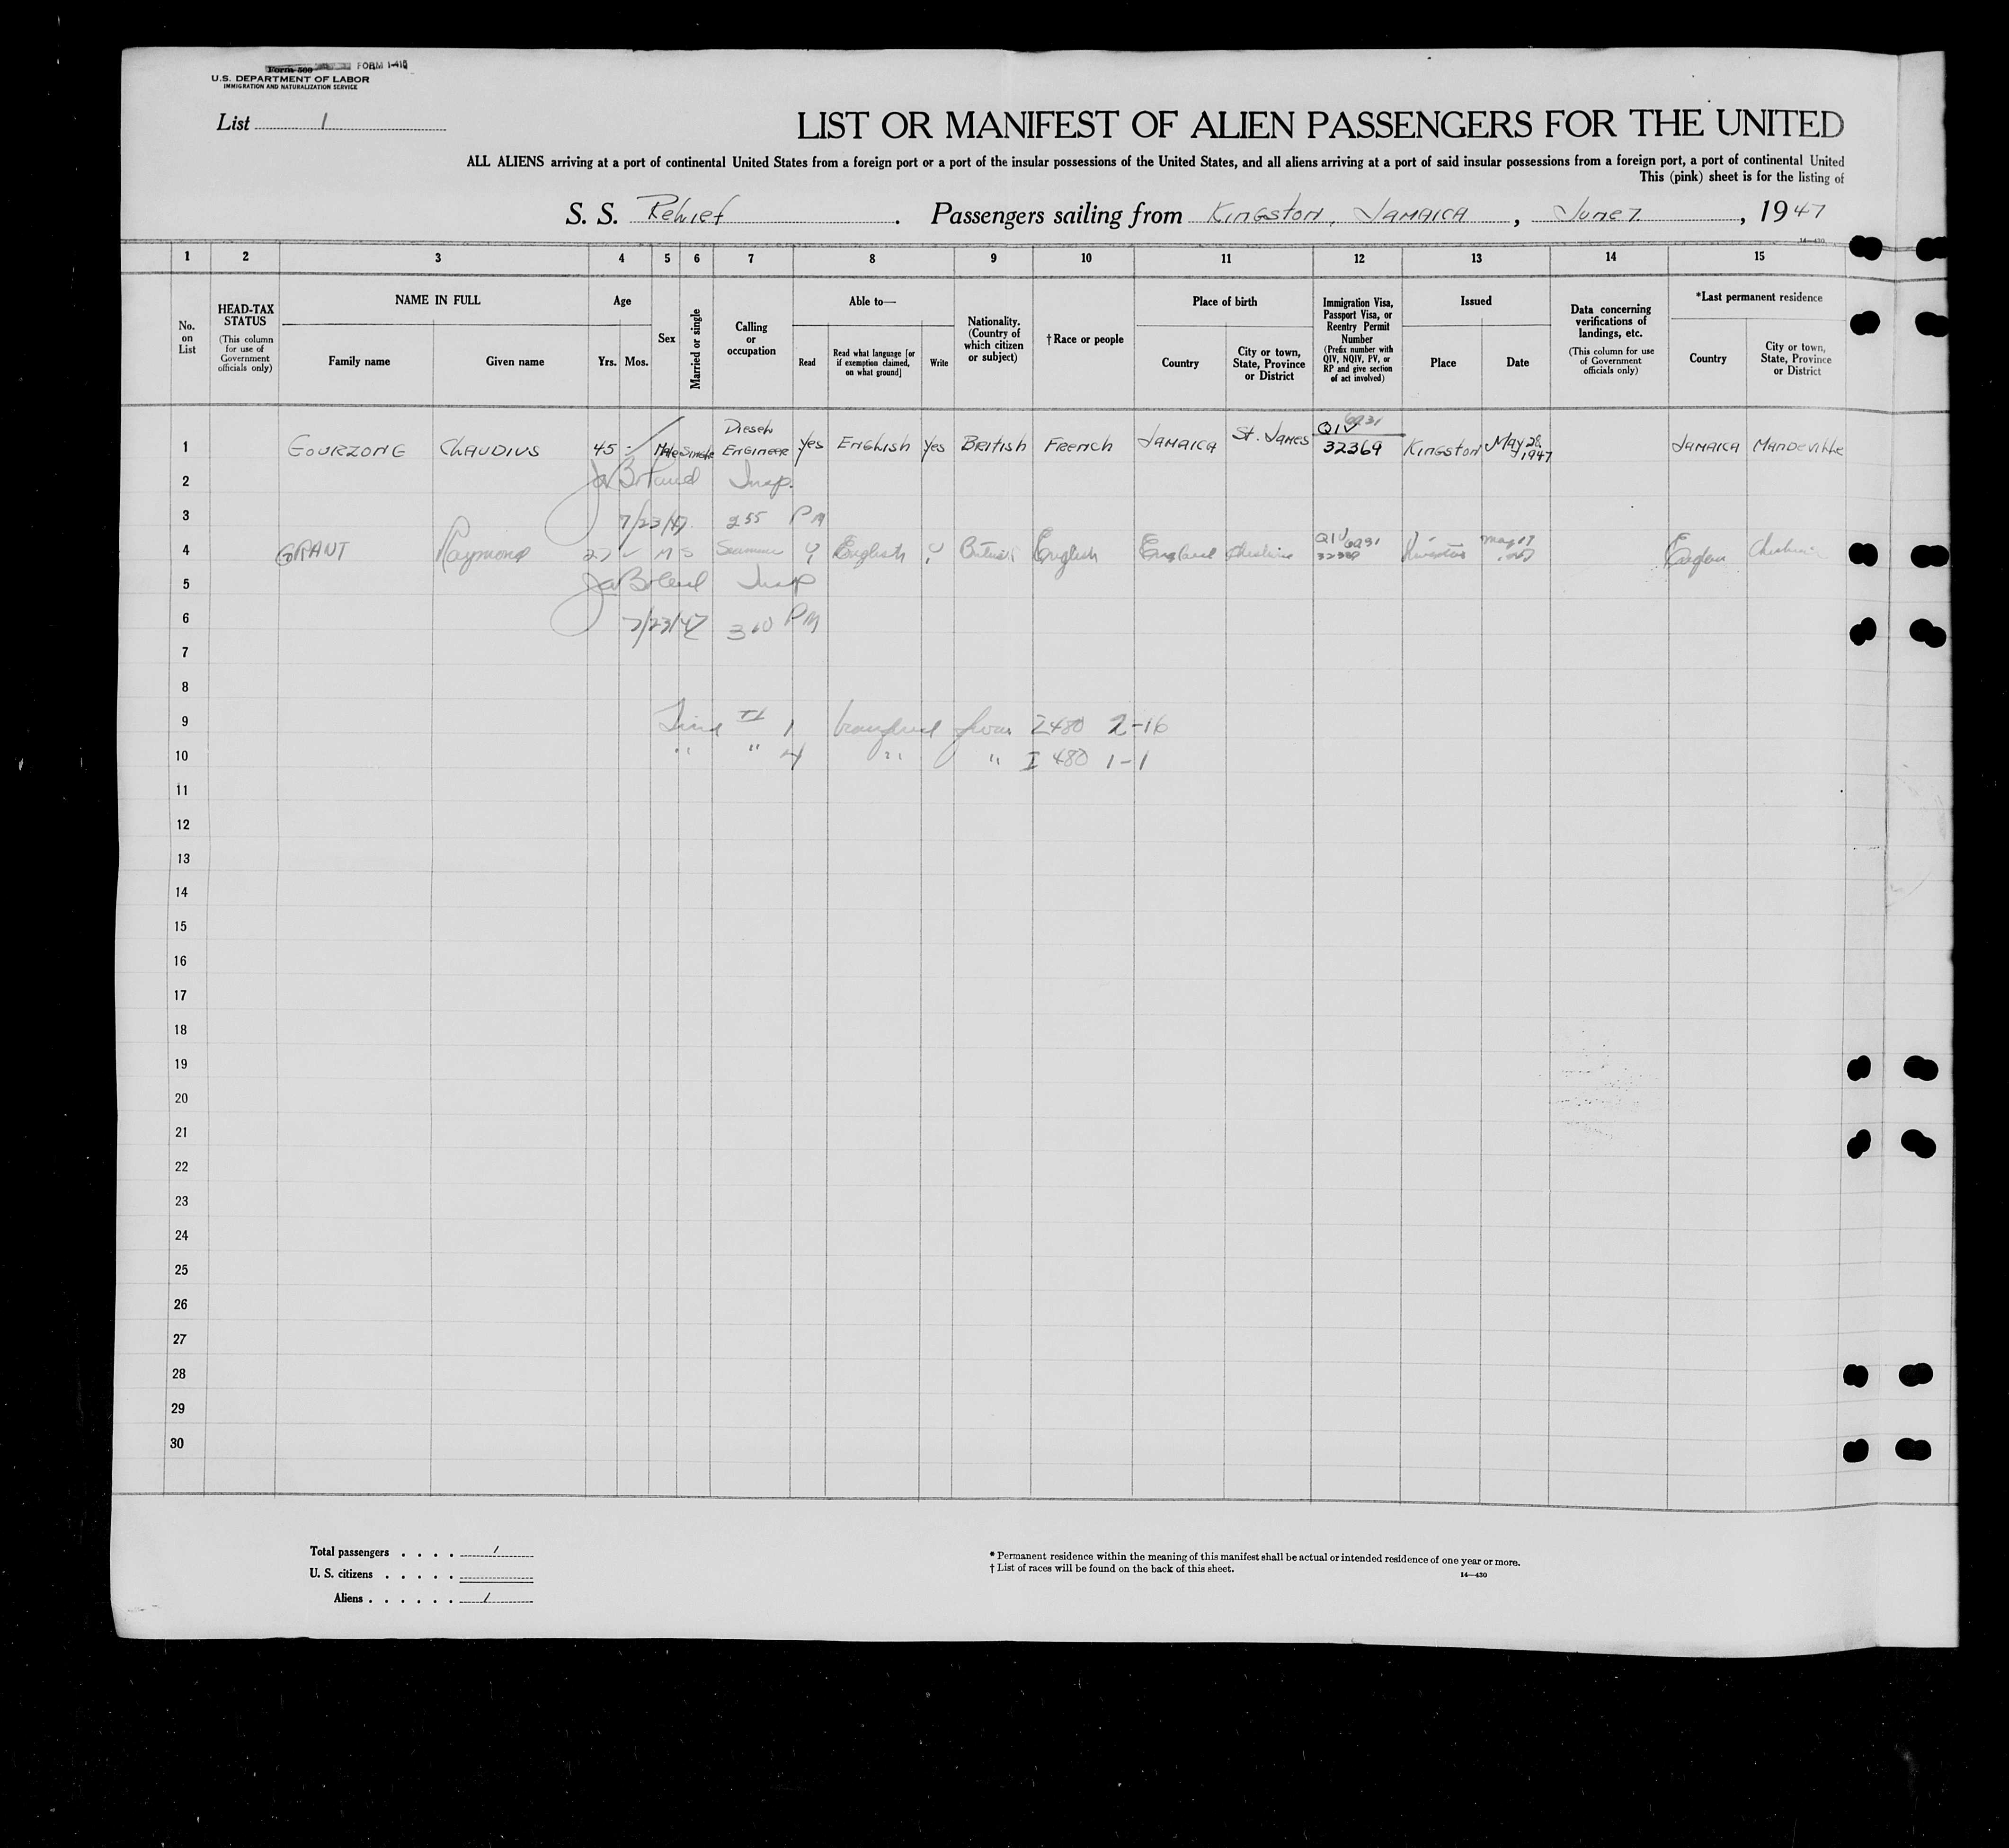 Form 500 FORM I-415
U.S. DEPARTMENT OF LABOR
IMMIGRATION AND NATURALIZATION SERVICE
List 1
LIST OR MANIFEST OF ALIEN PASSENGERS FOR THE UNITED
ALL ALIENS arriving at a port of continental United States from a foreign port or a port of the insular possessions of the United States, and all aliens arriving at a port of said insular possessions from a foreign port, a port of continental United
This (pink) sheet is for the listing of
S. S. Relief . Passengers sailing from Kingston, Jamaica , June 7 , 1947
14—430
1 2 3 4 5 6 7 8 9 10 11 12 13 14 15
No. on List
HEAD-TAX STATUS (This column for use of Government officials only)
NAME IN FULL
Family name Given name
Age
Yrs. Mos.
Sex
Married or single
Calling or occupation
Able to—
Read Read what language [or if exemption claimed, on what ground] Write
Nationality. (Country of which citizen or subject)
† Race or people
Place of birth
Country City or town, State, Province or District
Immigration Visa, Passport Visa, or Reentry Permit Number (Prefix number with QIV, NQIV, PV, or RP and give section of act involved)
Issued
Place Date
Data concerning verifications of landings, etc. (This column for use of Government officials only)
*Last permanent residence
Country City or town, State, Province or District
1 GOURZONG CLAUDIUS 45 - Male Single Diesel Engineer Yes English Yes British French Jamaica St. James QIV 6231 32369 Kingston May 28, 1947 Jamaica Mandeville
2 Insp.
3 7/23/47 255 PM
4 GRANT Raymond 27 M S Seaman Y English Y British English England Cheshire QIV Kingston May 19 Cheshire
5 Insp
6 7/23/47 310 PM
7
8
9 Line # 1 transferred from I480 2-16
10 " " 4 " " I 480 1-1
11
12
13
14
15
16
17
18
19
20
21
22
23
24
25
26
27
28
29
30
Total passengers . . . . 1
U. S. citizens . . . . .
Aliens . . . . . . 1
* Permanent residence within the meaning of this manifest shall be actual or intended residence of one year or more.
† List of races will be found on the back of this sheet.
14—430